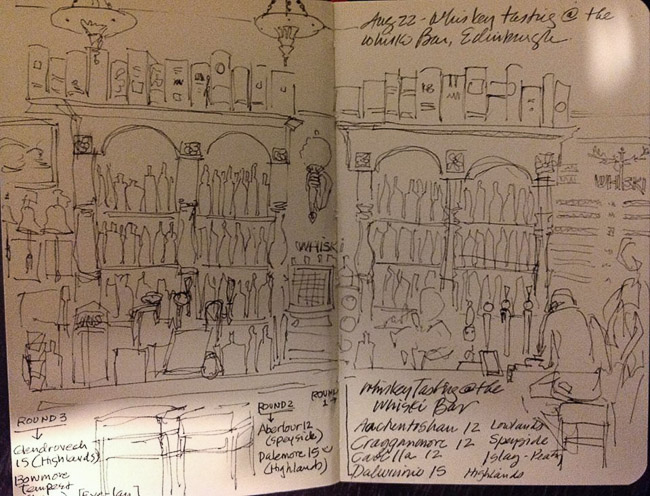 Aug 22 - Whiskey tasting @ the
Whiski Bar, Edinburgh
WHISKI
WHISKI
ROUND 3
Glendrovech
15 (Highlands)
Bowmore
Tempest
ROUND 2
Aberlour 12
(Speyside)
Dalemore 15
(Highlands)
ROUND
1 →
Whiskey Tasting @ the
Whiski Bar
Auchentoshan 12 Lowlands
Craggenmore 12 Speyside
Caol Illa 12 Islay-Peaty
Dalwinnie 15 Highlands